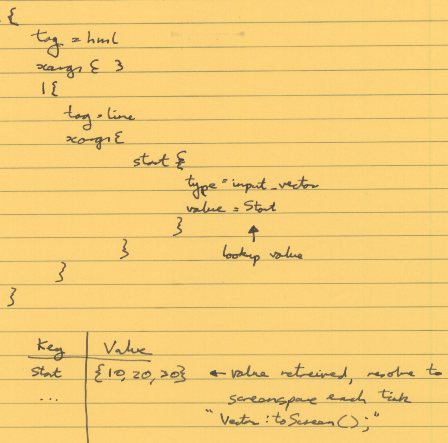 {
tag = html
xargs { }
1 {
tag = line
xargs {
start {
type = input_vector
value = Start
}
}
lookup value
}
}
Key Value
Start {10, 20, 20} ← value retreived, resolve to
... screenspace each tick
"Vector:toScreen();"